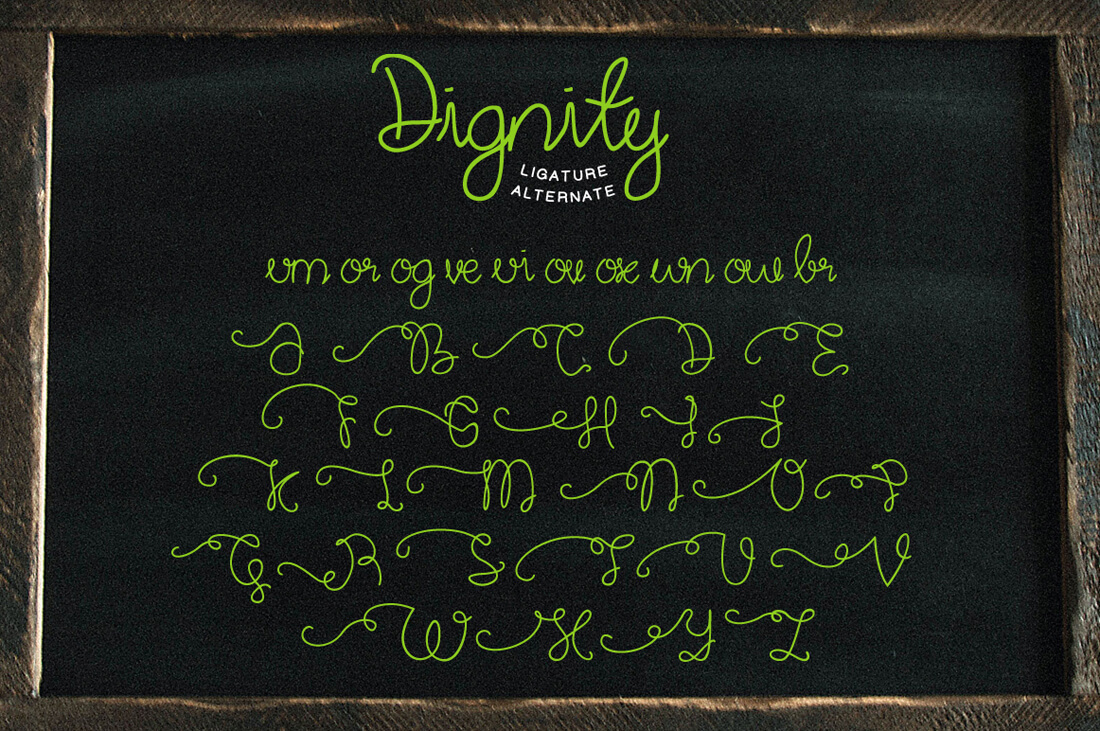 Dignity
LIGATURE
ALTERNATE
vm or og ve vi ov ose wn ow br
A B C D E
F G H I J
K L M N O P
Q R S T U V
W X Y Z